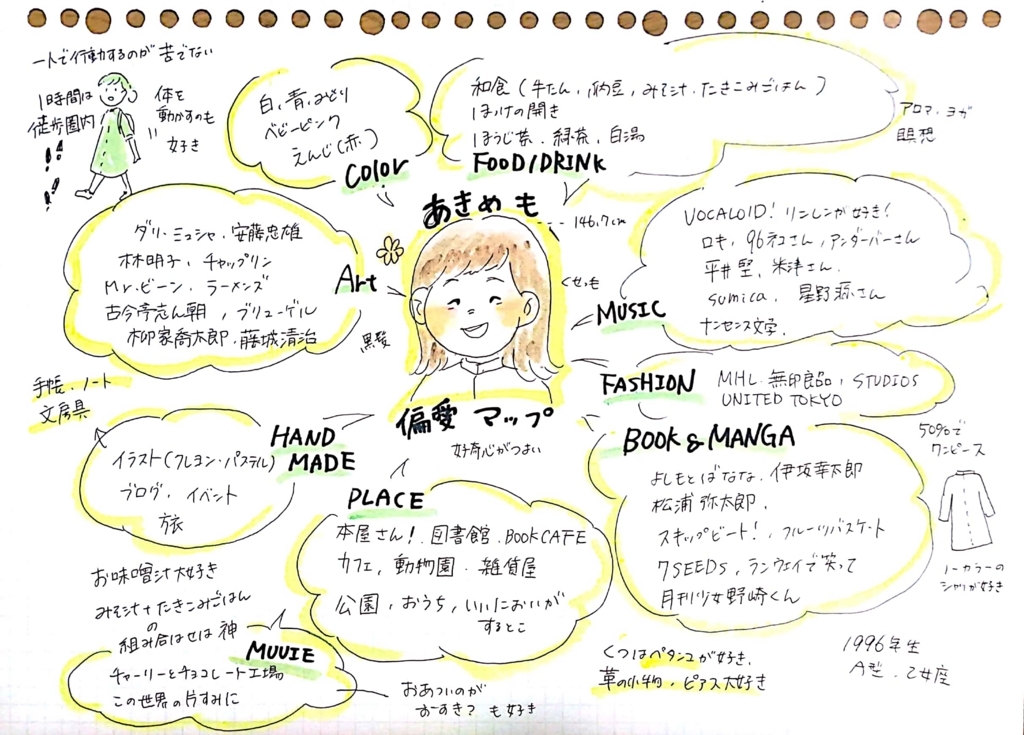 一人で行動するのが苦でない
1時間は
徒歩圏内
!!
!!
体を
動かすのも
好き
白、青、みどり
ベビーピンク
えんじ(赤)
Color
和食(牛たん、納豆、みそ汁、たきこみごはん)
ほっけの開き
ほうじ茶、緑茶、白湯
FOOD/DRINK
アロマ、ヨガ
瞑想
ダリ・ミュシャ、安藤忠雄
林明子、チャップリン
Mr.ビーン、ラーメンズ
古今亭志ん朝、ブリューゲル
柳家喬太郎、藤城清治
Art
あきめも
146.7cm
くせっ毛
黒髪
偏愛マップ
好奇心がつよい
VOCALOID! リンレンが好き!
ロキ、96ネコさん、アンダーバーさん
平井堅、米津さん、
sumica、星野源さん
ナンセンス文学、
MUSIC
FASHION
MHL、無印良品、STUDIOS
UNITED TOKYO
手帳、ノート
文房具
HAND
MADE
イラスト(クレヨン・パステル)
ブログ、イベント
旅
PLACE
本屋さん!図書館、BOOKCAFE
カフェ、動物園、雑貨屋
公園、おうち、いいにおいが
するとこ
BOOK & MANGA
よしもとばなな、伊坂幸太郎
松浦弥太郎、
スキップビート!、フルーツバスケット
7SEEDs、ランウェイで笑って
月刊少女野崎くん
50%で
ワンピース
ノーカラーの
シャツが好き
お味噌汁大好き
みそ汁+たきこみごはん
の
組み合はせは神
MUUIE
チャーリーとチョコレート工場
この世界の片すみに
おあついのが
おーすき? も好き
くつはペタンコが好き、
革の小物、ピアス大好き
1996年生
A型、乙女座